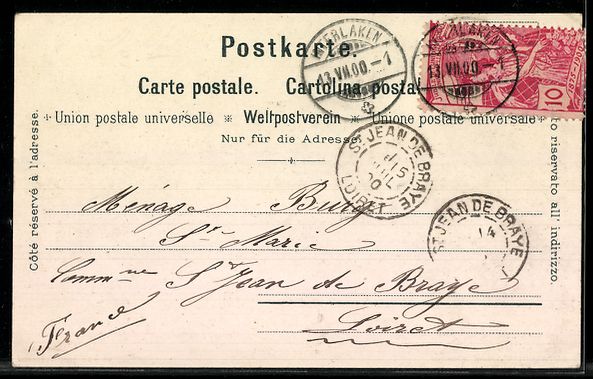 Postkarte.
Carte postale. Cartolina postal
Union postale universelle ✻ Weltpostverein ✻ Unione postale universale
Nur für die Adresse
Côté réservé à l'adresse.
to riservato all' indirizzo.
INTERLAKEN
13.VII.00.–1
INTERLAKEN
13.VII.00.–1
10
ST JEAN DE BRAYE
15
00
LOIRET
ST JEAN DE BRAYE
14
Ménage
Ste Marie
Commne St Jean de Braye
Loiret
France